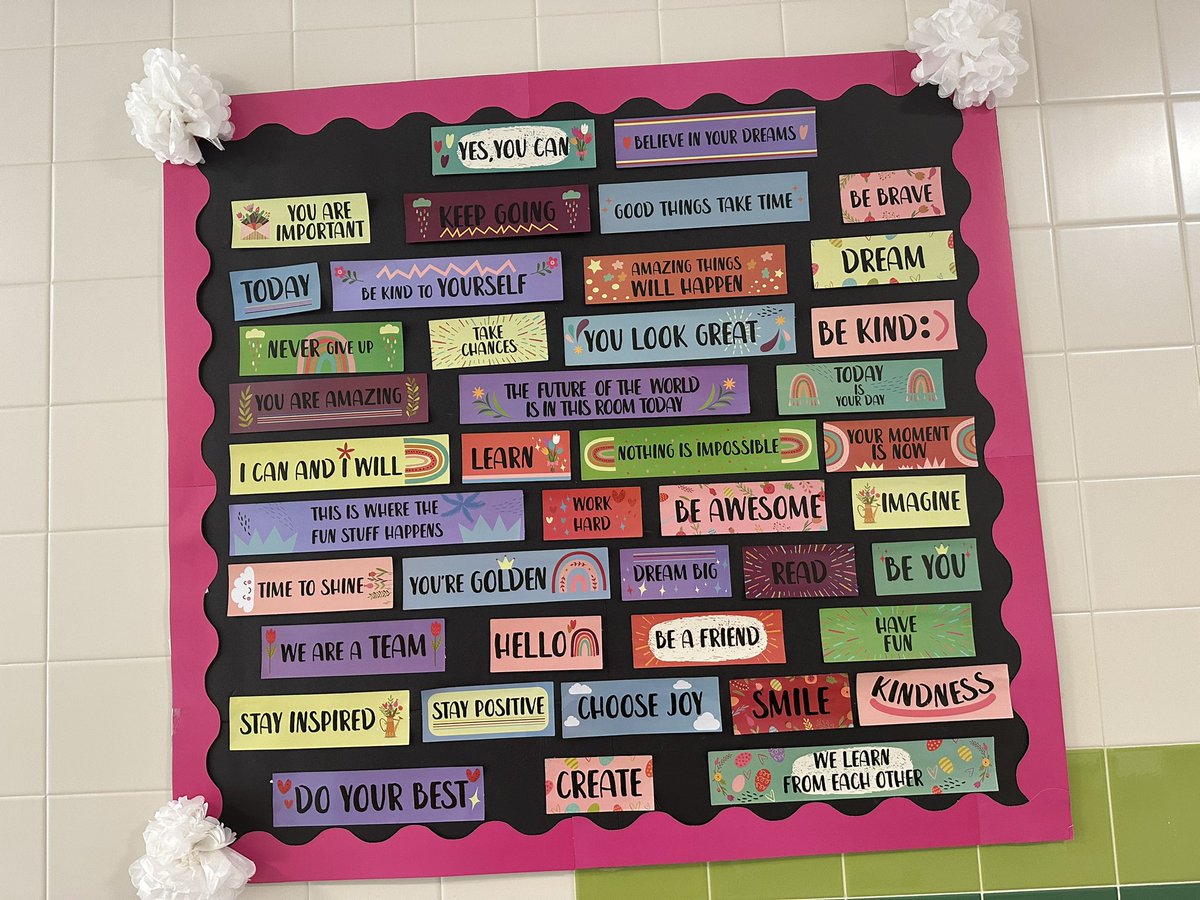 YES, YOU CAN
BELIEVE IN YOUR DREAMS
YOU ARE
IMPORTANT
KEEP GOING
GOOD THINGS TAKE TIME
BE BRAVE
TODAY
BE KIND TO YOURSELF
AMAZING THINGS
WILL HAPPEN
DREAM
NEVER GIVE UP
TAKE
CHANCES
YOU LOOK GREAT
BE KIND:)
YOU ARE AMAZING
THE FUTURE OF THE WORLD
IS IN THIS ROOM TODAY
TODAY
IS
YOUR DAY
I CAN AND I WILL
LEARN
NOTHING IS IMPOSSIBLE
YOUR MOMENT
IS NOW
THIS IS WHERE THE
FUN STUFF HAPPENS
WORK
HARD
BE AWESOME
IMAGINE
TIME TO SHINE
YOU'RE GOLDEN
DREAM BIG
READ
BE YOU
WE ARE A TEAM
HELLO
BE A FRIEND
HAVE
FUN
STAY INSPIRED
STAY POSITIVE
CHOOSE JOY
SMILE
KINDNESS
DO YOUR BEST
CREATE
WE LEARN
FROM EACH OTHER